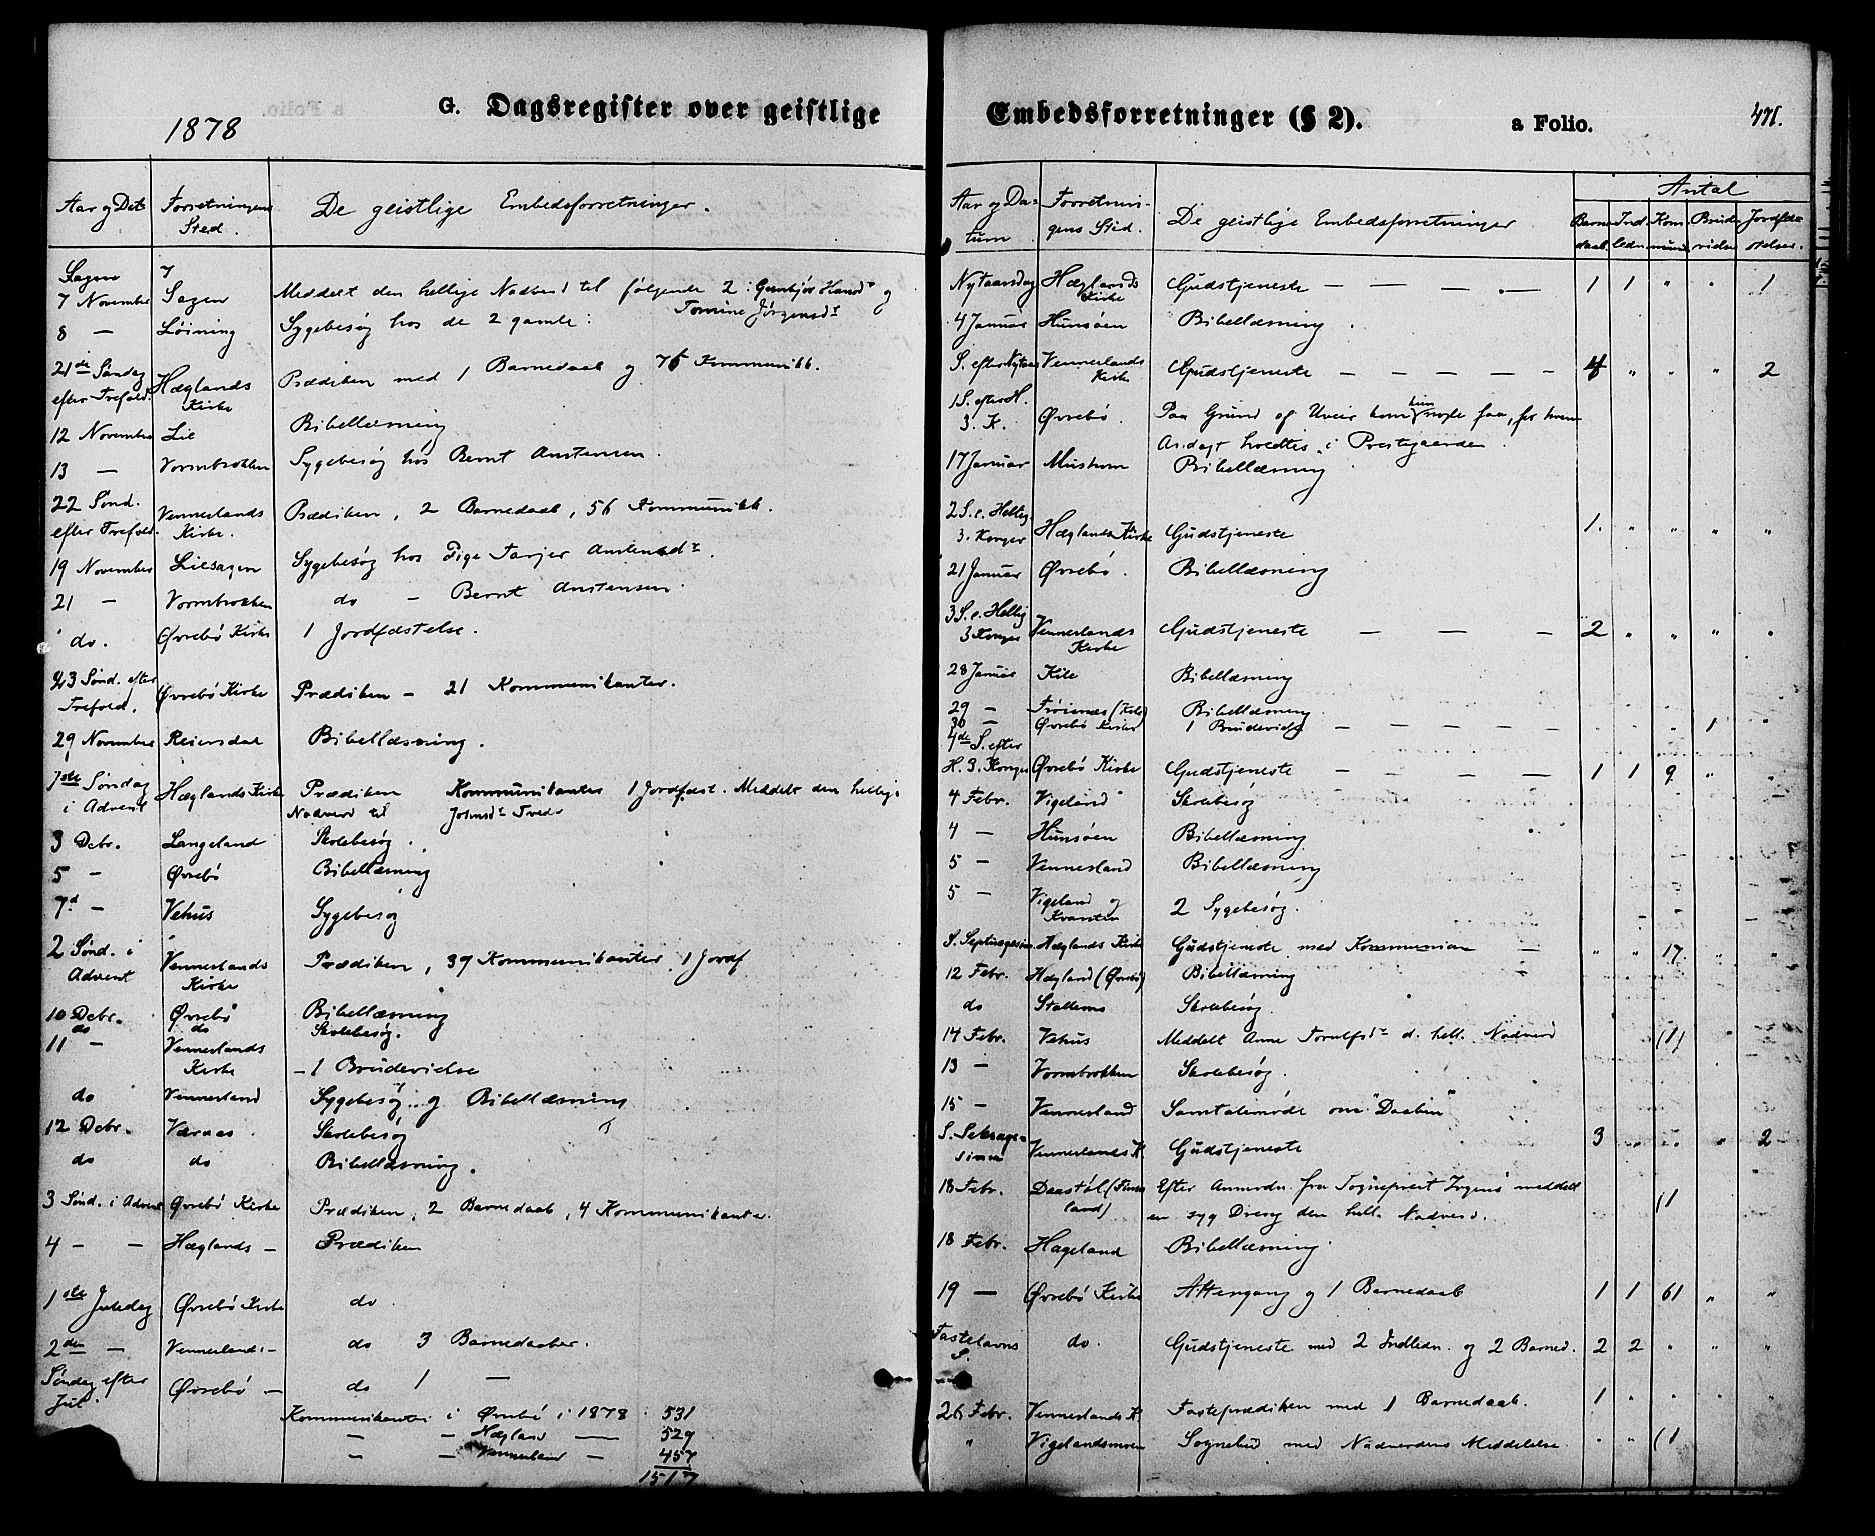 G. Dagsregister over geistlige
1878
Aar og Dat
Forretningens Sted.
De geistlige Embedsforretninger.
7 November Sagen Meddelt den hellige Nadverd til følgende 2: Gunbjør Hansdr og
Tomine Jørgensdr
8 — Løining Sygebesøg hos de 2 gamle:
21de Søndag efter Trefold. Hæglands Kirke Prædiken med 1 Barnedaab og 76 Kommunikk.
12 November Lie Bibellæsning
13 — Vormbrokken Sygebesøg hos Bernt Anstensen.
22 Sønd. efter Trefold. Vennerlands Kirke. Prædiken, 2 Barnedaab, 56 Kommunikk.
19 November Liesagen Sygebesøg hos Pige Tarjer
21 — Vormbrokken do — Bernt Anstensen.
do. Øvrebø Kirke 1 Jordfæstelse.
23 Sønd. efter Trefold. Øvrebø Kirke Prædiken — 21 Kommunikanter.
29 November Reiersdal Bibellæsning.
1ste Søndag i Advent Hæglands Kirke Prædiken Kommunikanter 1 Jordfæst. Meddelt den hellige
Nadverd til
3 Debr. Langeland Skolebesøg.
5 — Øvrebø Bibellæsning
7d — Vehus Sygebesøg
2 Sønd. i Advent Vennerlands Kirke Prædiken, 39 Kommunikanter, 1 Jordf
10 Debr. Øvrebø Bibellæsning
do do Skolebesøg.
11 — Vennerlands Kirke — 1 Brudevielse
do Vennerland Sygebesøg og Bibellæsning
12 Debr. Værnæs Skolebesøg
do do Bibellæsning.
3 Sønd. i Advent Øvrebø Kirke Prædiken, 2 Barnedaab, 4 Kommunikanter.
4 — — Hæglands — Prædiken
1ste Juledag Øvrebø Kirke do.
2den — Vennerlands — do 3 Barnedaaber.
Søndag efter Jul. Øvrebø — do 1 —
Kommunikanter i Øvrebø i 1878 531
— — Hægland — 529
— — Vennerland — 457
1517
Embedsforretninger (§ 2).
a Folio.
471.
Aar og Datum
Forretningens Sted.
De geistlige Embedsforretninger
Antal
Barnedaab Indledn Kommunik Brudevidse Jordfæstelser.
Nytaarsdag Hæglands Kirke Gudstjeneste — — — — 1 1 " " 1
4 Januar Hunsøen Bibellæsning.
S. efter Nytaar Vennerlands Kirke Gudstjeneste — — — — — 4 " " " 2
1 S. efter H. 3. K. Øvrebø. Paa Grund af Uveir kom kun nogle faa, for hvem
Andagt holdtes i Præstegaarden.
17 Januar Bibellæsning
2 S. e. Hellig 3. Konger Hæglands Kirke Gudstjeneste 1. " " " "
21 Januar Øvrebø. Bibellæsning
3 S. e. Hellig 3 Konger Vennerlands Kirke Gudstjeneste — — — 2 " " " "
28 Januar Kile Bibellæsning
29 — Frøisnæs (Kile) Bibellæsning
30 — Øvrebø Kirke 1 Brudevidse — — — 1 "
4de S. efter H. 3. Konger Øvrebø Kirke Gudstjeneste — — — 1 1 9 " "
4 Febr. Vigeland Skolebesøg
4 — Hunsøen Bibellæsning
5 — Vennesland Bibellæsning
5 — Vigeland og Kvarsten 2 Sygebesøg.
S. Septuagesima Hæglands Kirke Gudstjeneste med Kommunion — " " 17 " "
12 Febr. Hægland (Øvrebø) Bibellæsning
do Stallemo Skolebesøg.
14 Febr. Vehus Meddelt Anne d. hell. Nadverd (1)
13 — Vormbrokken Skolebesøg.
15 — Vennerland Samtalemøde om "Daaben"
S. Seksagesima Vennerlands K. Gudstjeneste 3 " " " 2
18 Febr. Efter Anmodn. fra Sogneprest meddelt
en syg Dreng den hell. Nadverd. (1
18 Febr. Hageland Bibellæsning.
19 — Øvrebø Kirke Altergang og 1 Barnedaab 1 1 61 " "
Fastelavns S. do. Gudstjeneste med 2 Indledn. og 2 Barned. 2 2 " " "
26 Febr. Vennerlands K. Fasteprædiken med 1 Barnedaab. 1 " " " "
" Vigelandsmoen Sognebud med Nadverdens Meddelelse. (1